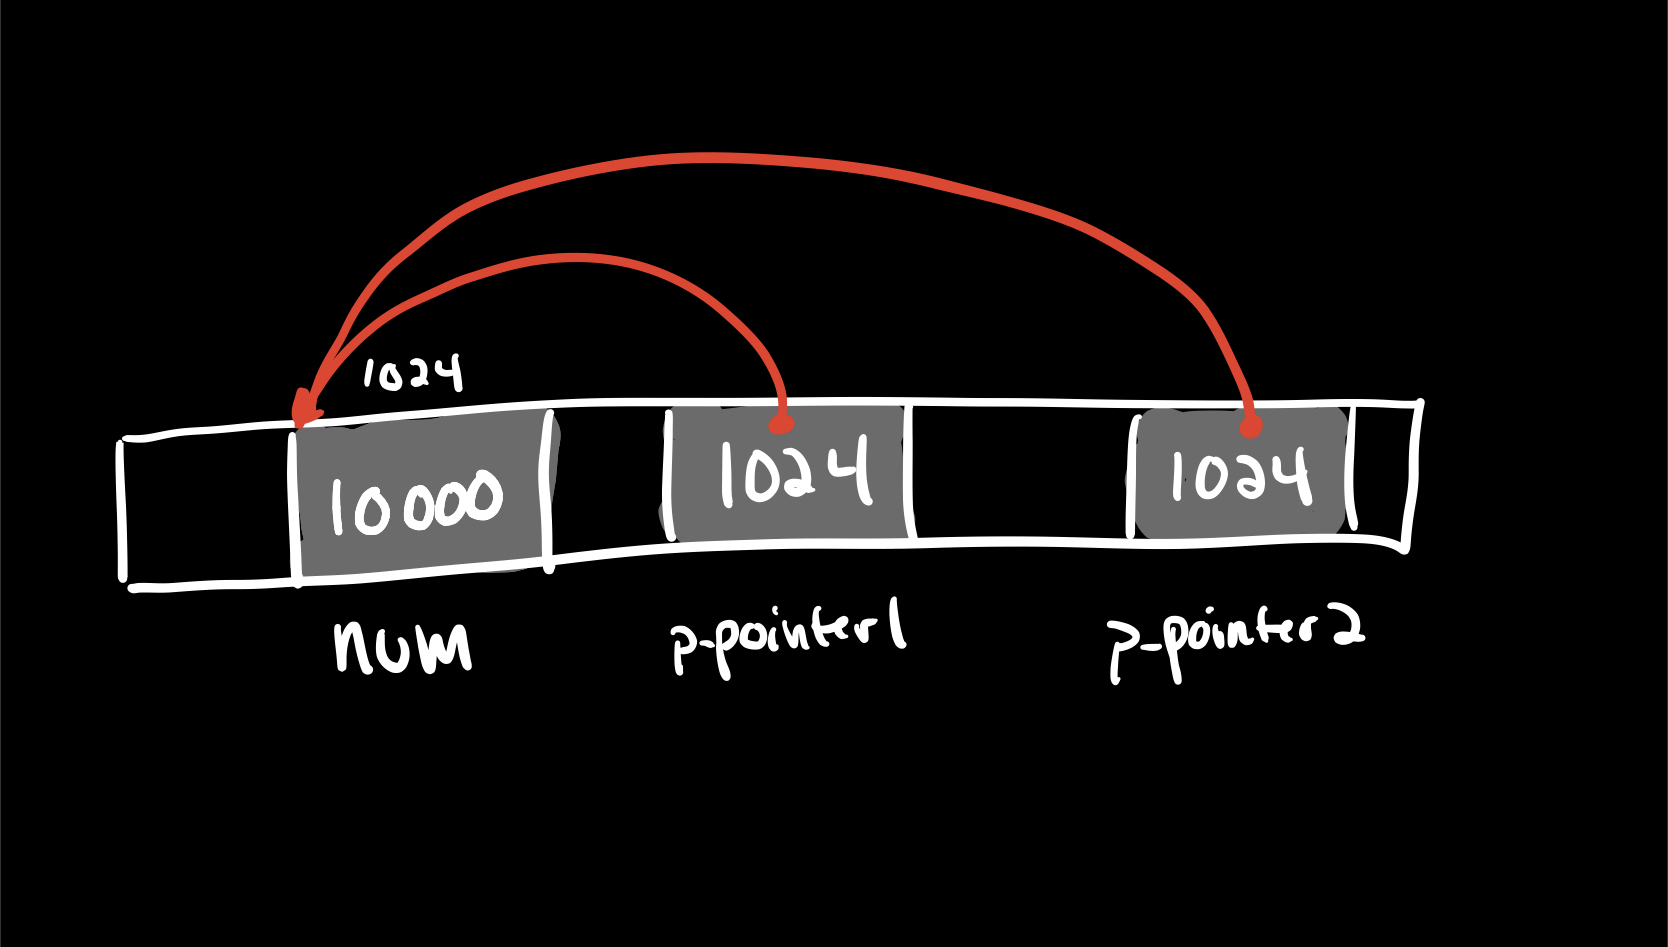 1024
10000 1024 1024
num p-pointer1 p-pointer2